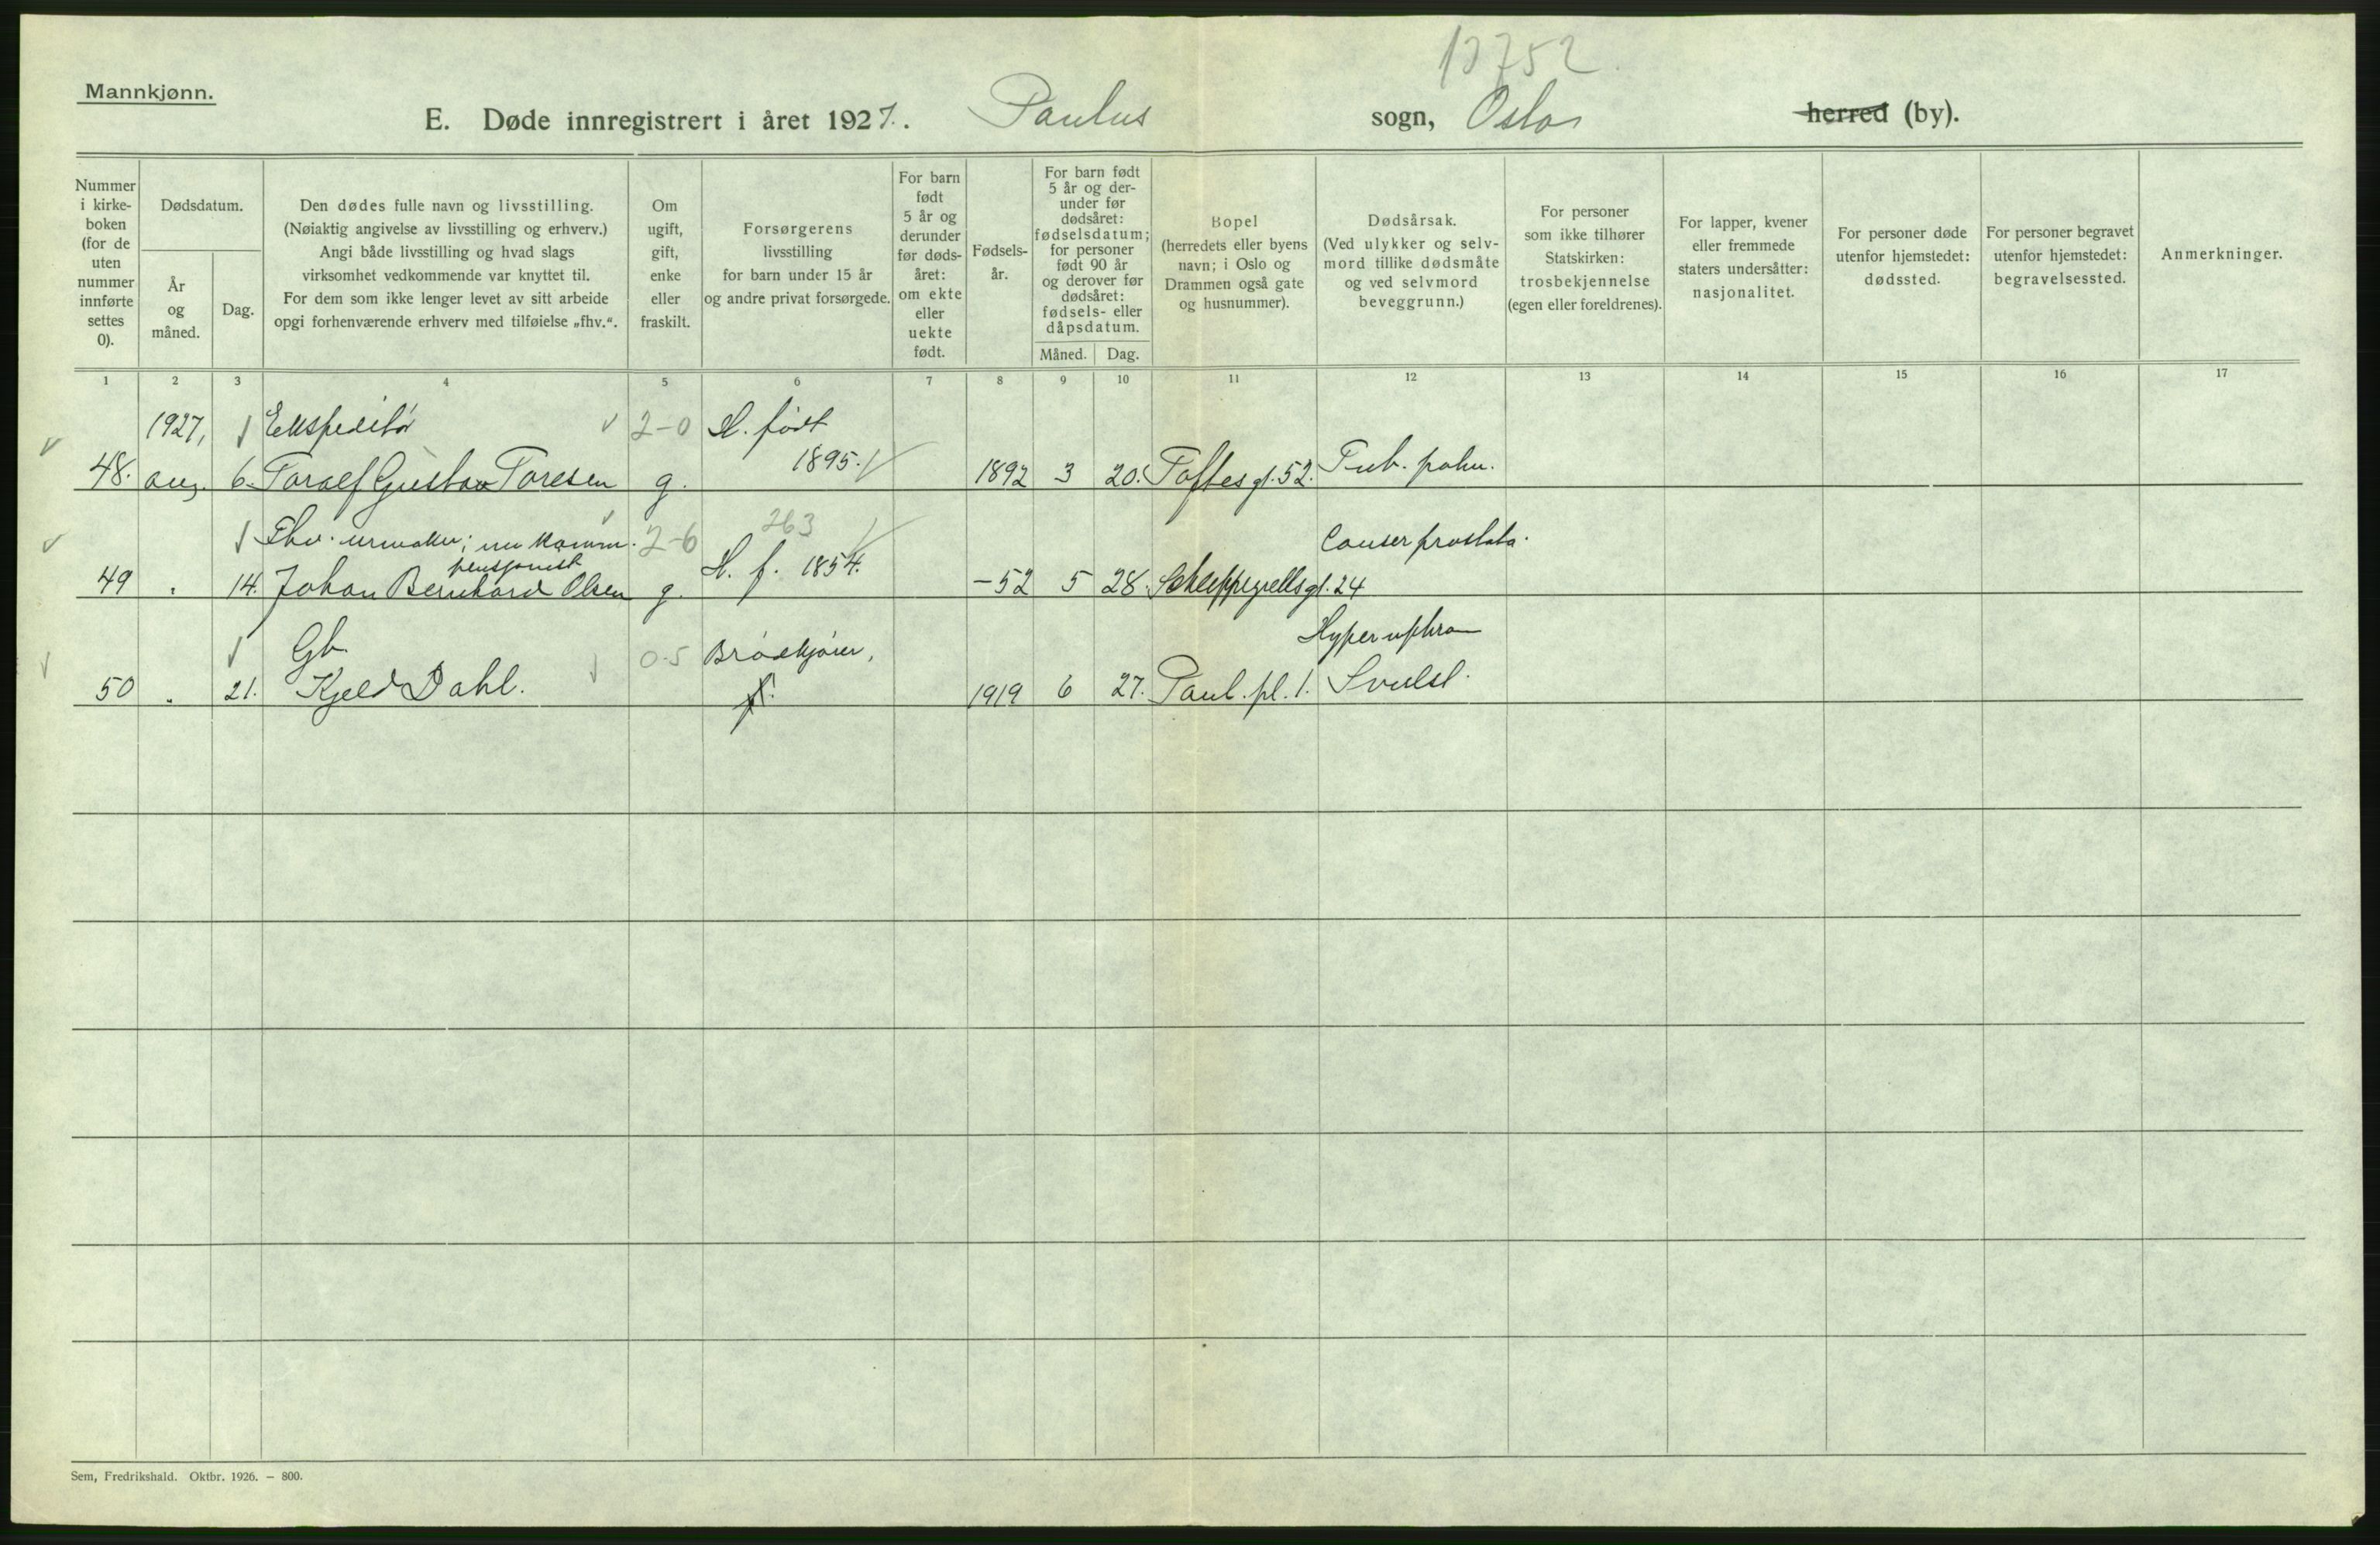 13752
Mannkjønn.
E. Døde innregistrert i året 1927. Paulus sogn, Oslo herred (by).
Nummer i kirke- boken (for de uten nummer innførte settes 0).
Dødsdatum.
År og måned.
Dag.
Den dødes fulle navn og livsstilling.
(Nøiaktig angivelse av livsstilling og erhverv.)
Angi både livsstilling og hvad slags
virksomhet vedkommende var knyttet til.
For dem som ikke lenger levet av sitt arbeide
opgi forhenværende erhverv med tilføielse „fhv.“.
Om ugift, gift, enke eller fraskilt.
Forsørgerens
livsstilling
for barn under 15 år
og andre privat forsørgede.
For barn født 5 år og derunder før døds- året: om ekte eller uekte født.
Fødsels- år.
For barn født 5 år og der- under før dødsåret: fødselsdatum; for personer født 90 år og derover før dødsåret: fødsels- eller dåpsdatum.
Måned.
Dag.
Bopel
(herredets eller byens
navn; i Oslo og
Drammen også gate
og husnummer).
Dødsårsak.
(Ved ulykker og selv-
mord tillike dødsmåte
og ved selvmord
beveggrunn.)
For personer
som ikke tilhører
Statskirken:
trosbekjennelse
(egen eller foreldrenes).
For lapper, kvener
eller fremmede
staters undersåtter:
nasjonalitet.
For personer døde
utenfor hjemstedet:
dødssted.
For personer begravet
utenfor hjemstedet:
begravelsessted.
Anmerkninger.
1 2 3 4 5 6 7 8 9 10 11 12 13 14 15 16 17
1927, Ekspeditør 2-0 H. født
48. aug. 6. Toralf Gustav Toresen g. 1895. 1892 3 20. Toftes gt. 52. Tub. pulm.
Fhv. urmaker; nu komm. 2-6 263
pensjonist Cancer prostata.
49 " 14. Johan Bernhard Olsen g. H. f. 1854. -52 5 28. Schleppegrellsgt. 24
Gb. 0-5 Brødkjører, Hypernephrom
50 " 21. Kjeld Dahl. 1919 6 27. Paul. pl. 1. Svulst.
Sem, Fredrikshald. Oktbr. 1926. — 800.